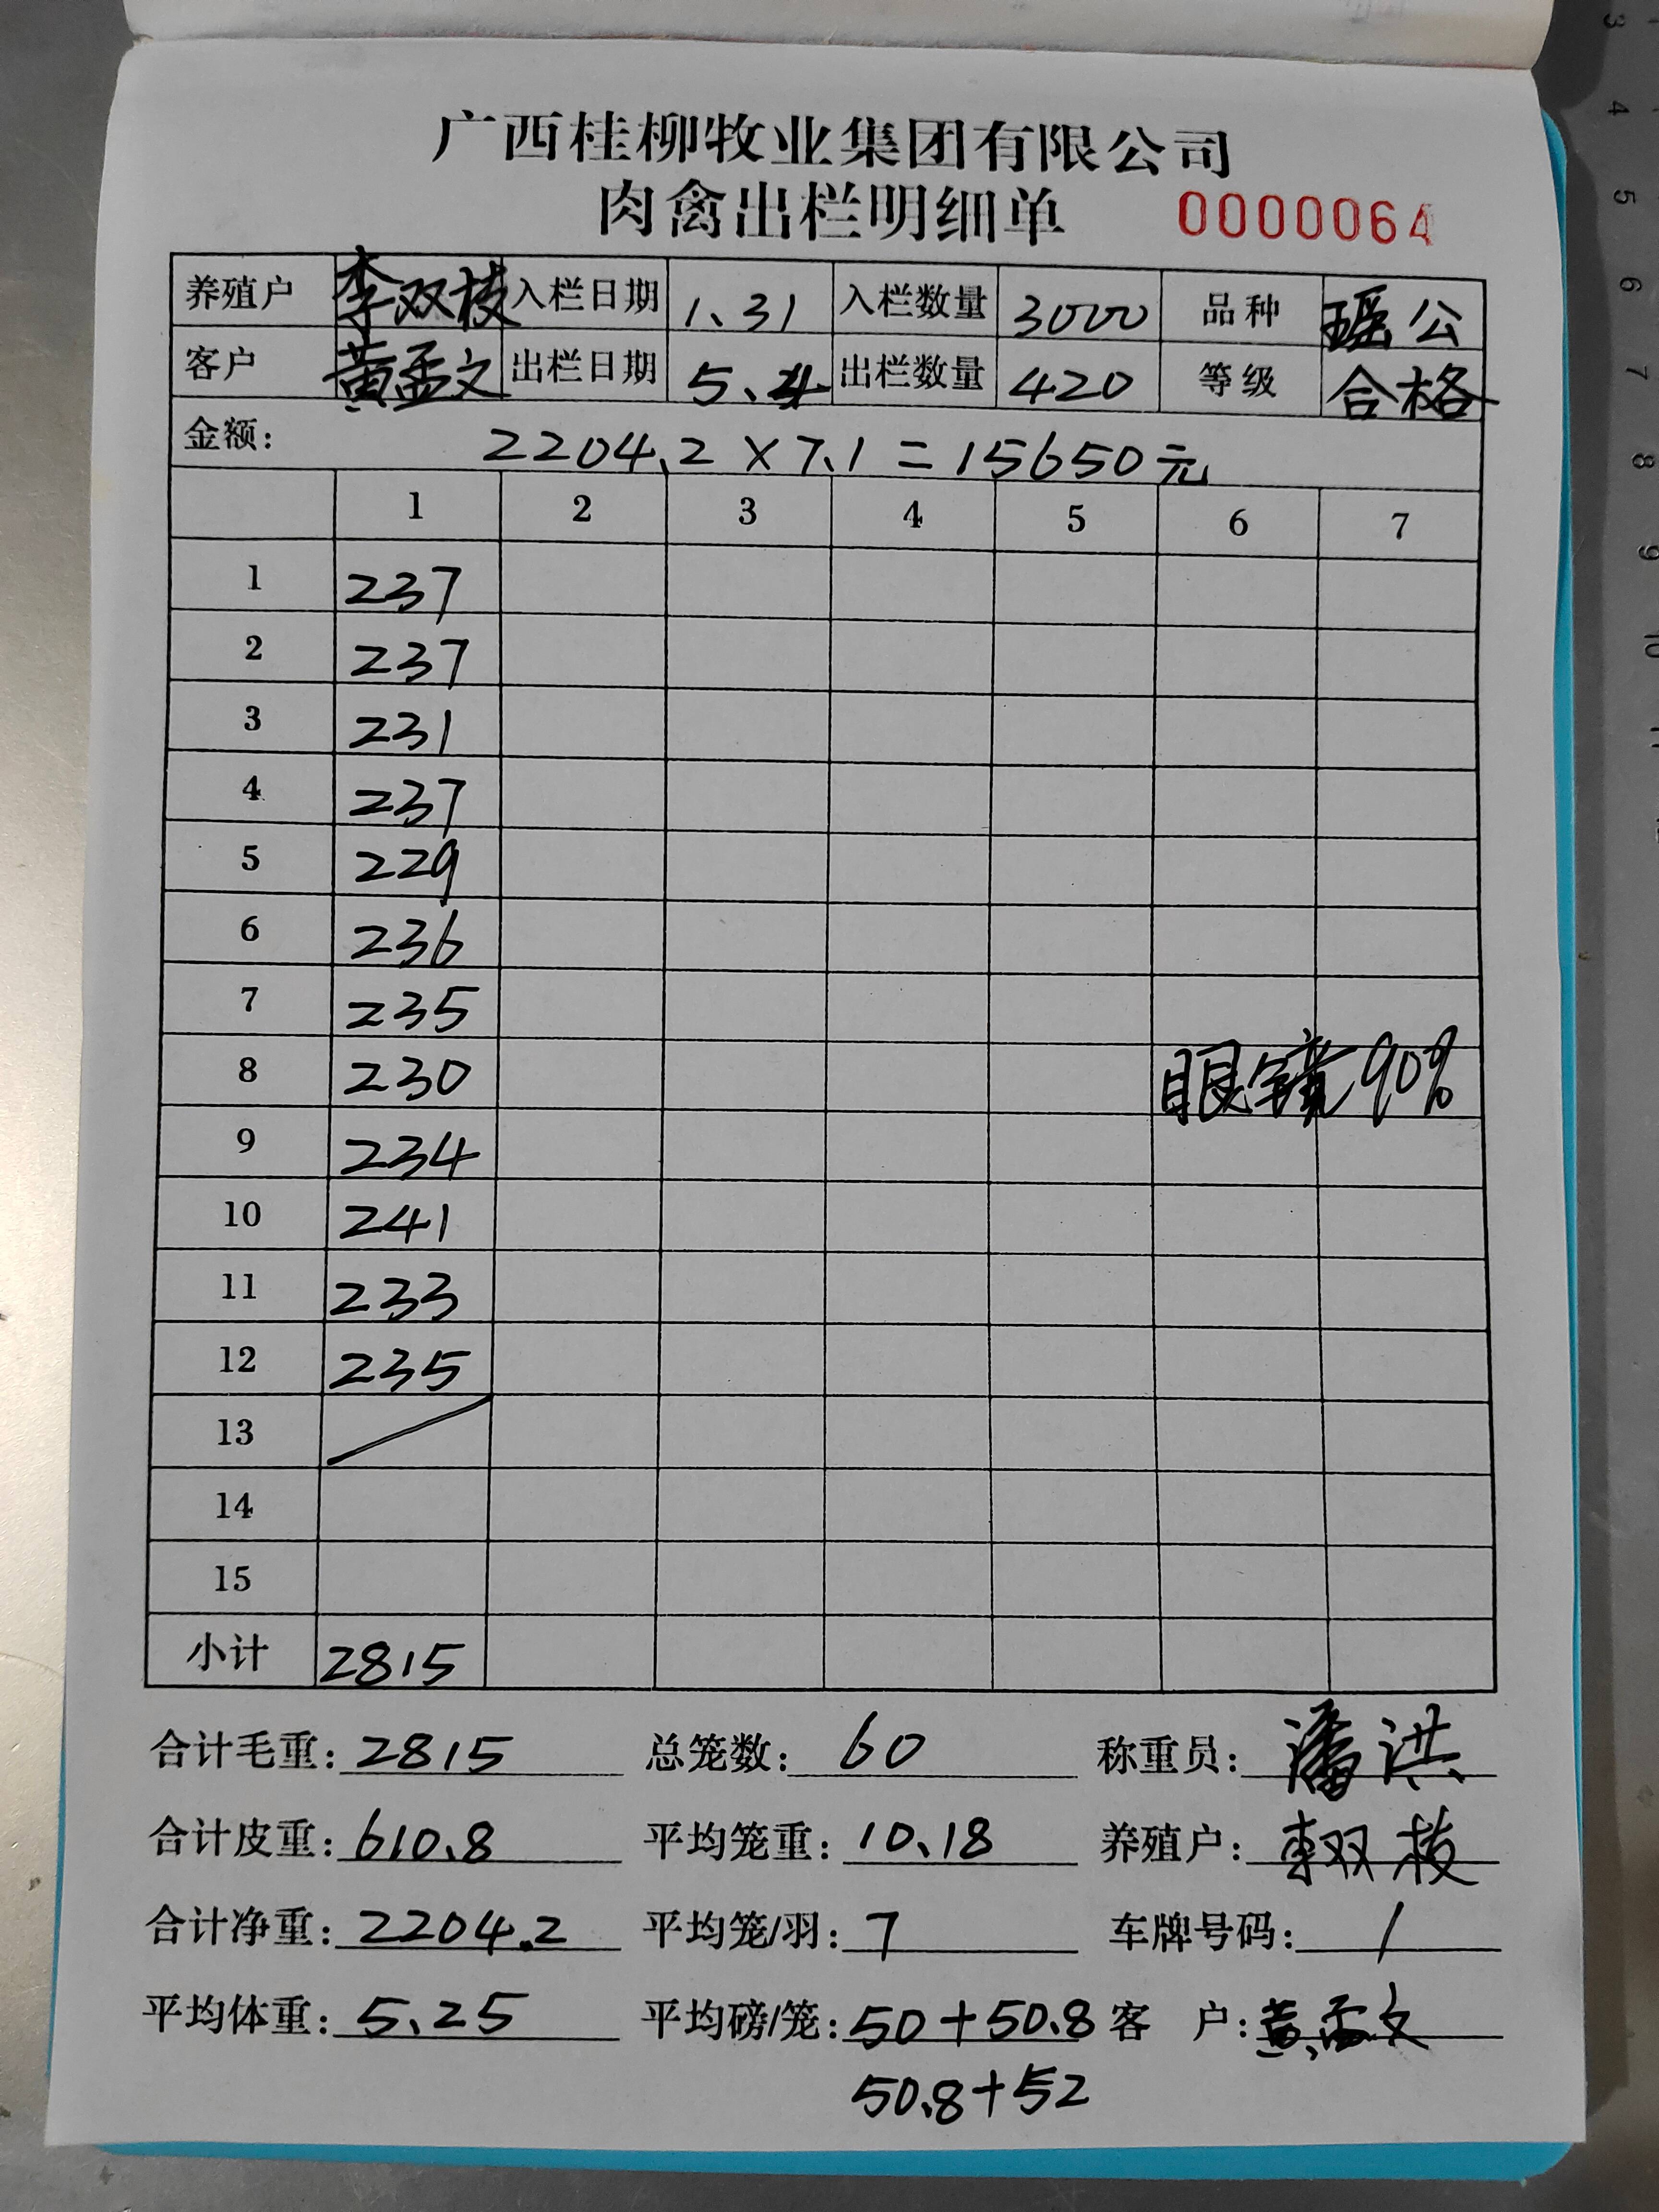 广西桂柳牧业集团有限公司
肉禽出栏明细单 0000064
养殖户 李双枝 入栏日期 1.31 入栏数量 3000 品种 瑶公
客户 黄孟文 出栏日期 5.4 出栏数量 420 等级 合格
金额: 2204.2×7.1=15650元
1 2 3 4 5 6 7
1 237
2 237
3 231
4 237
5 229
6 236
7 235
8 230 眼镜90%
9 234
10 241
11 233
12 235
13
14
15
小计 2815
合计毛重: 2815 总笼数: 60 称重员: 潘洪
合计皮重: 610.8 平均笼重: 10.18 养殖户: 李双枝
合计净重: 2204.2 平均笼/羽: 7 车牌号码: /
平均体重: 5.25 平均磅/笼: 50+50.8 客 户: 黄孟文
50.8+52